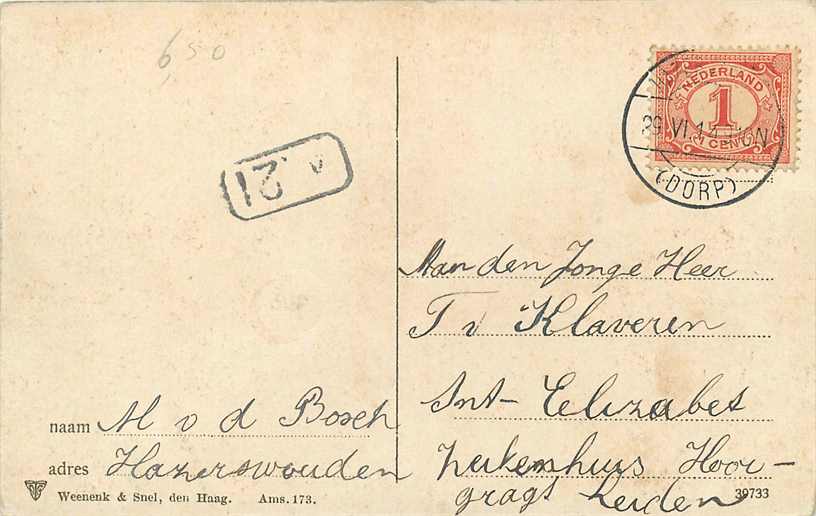 6,50
NEDERLAND
1
CENT
(DORP)
21
Aan den Jonge Heer
T v Klaveren
Int- Elizabet
zeikenhuis Hoor-
gragt Leiden
naam M v d Bosch
adres Hazerswouden
Weenenk & Snel, den Haag. Ams. 173.
39733